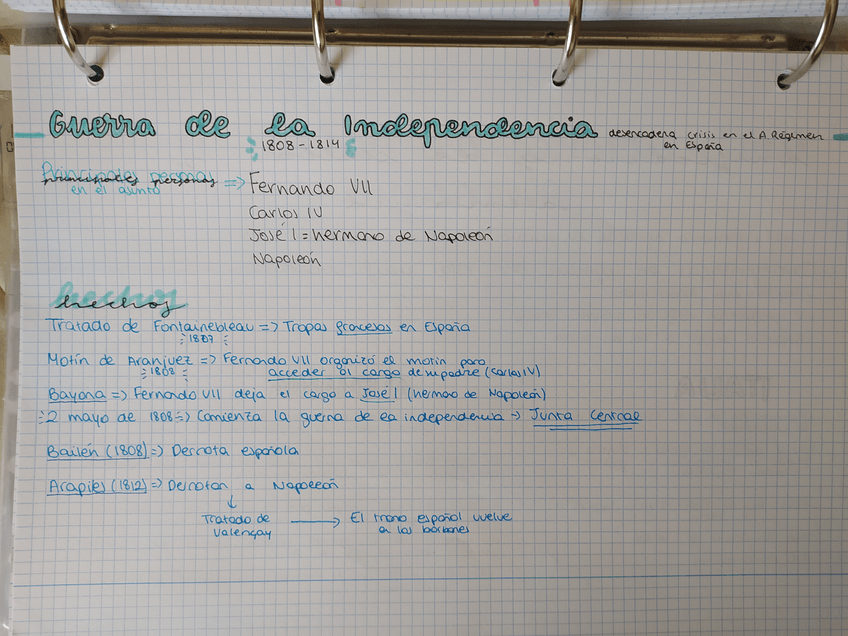 Guerra de la Independencia desencadena crisis en el A. Régimen
1808 - 1814 en España
Principales personas => Fernando VII
en el asunto
Carlos IV
José I = hermano de Napoleón
Napoleón
hechos
Tratado de Fontainebleau => Tropas francesas en España
1807
Motín de Aranjuez => Fernando VII organizó el motín para
1808 acceder al cargo de su padre (Carlos IV)
Bayona => Fernando VII deja el cargo a José I (hermano de Napoleón)
2 mayo de 1808 => Comienza la guerra de la independencia -> Junta Central
Bailén (1808) => Derrota española
Arapiles (1812) => Derrotan a Napoleón
↓
Tratado de → El trono español vuelve
Valençay a los borbones